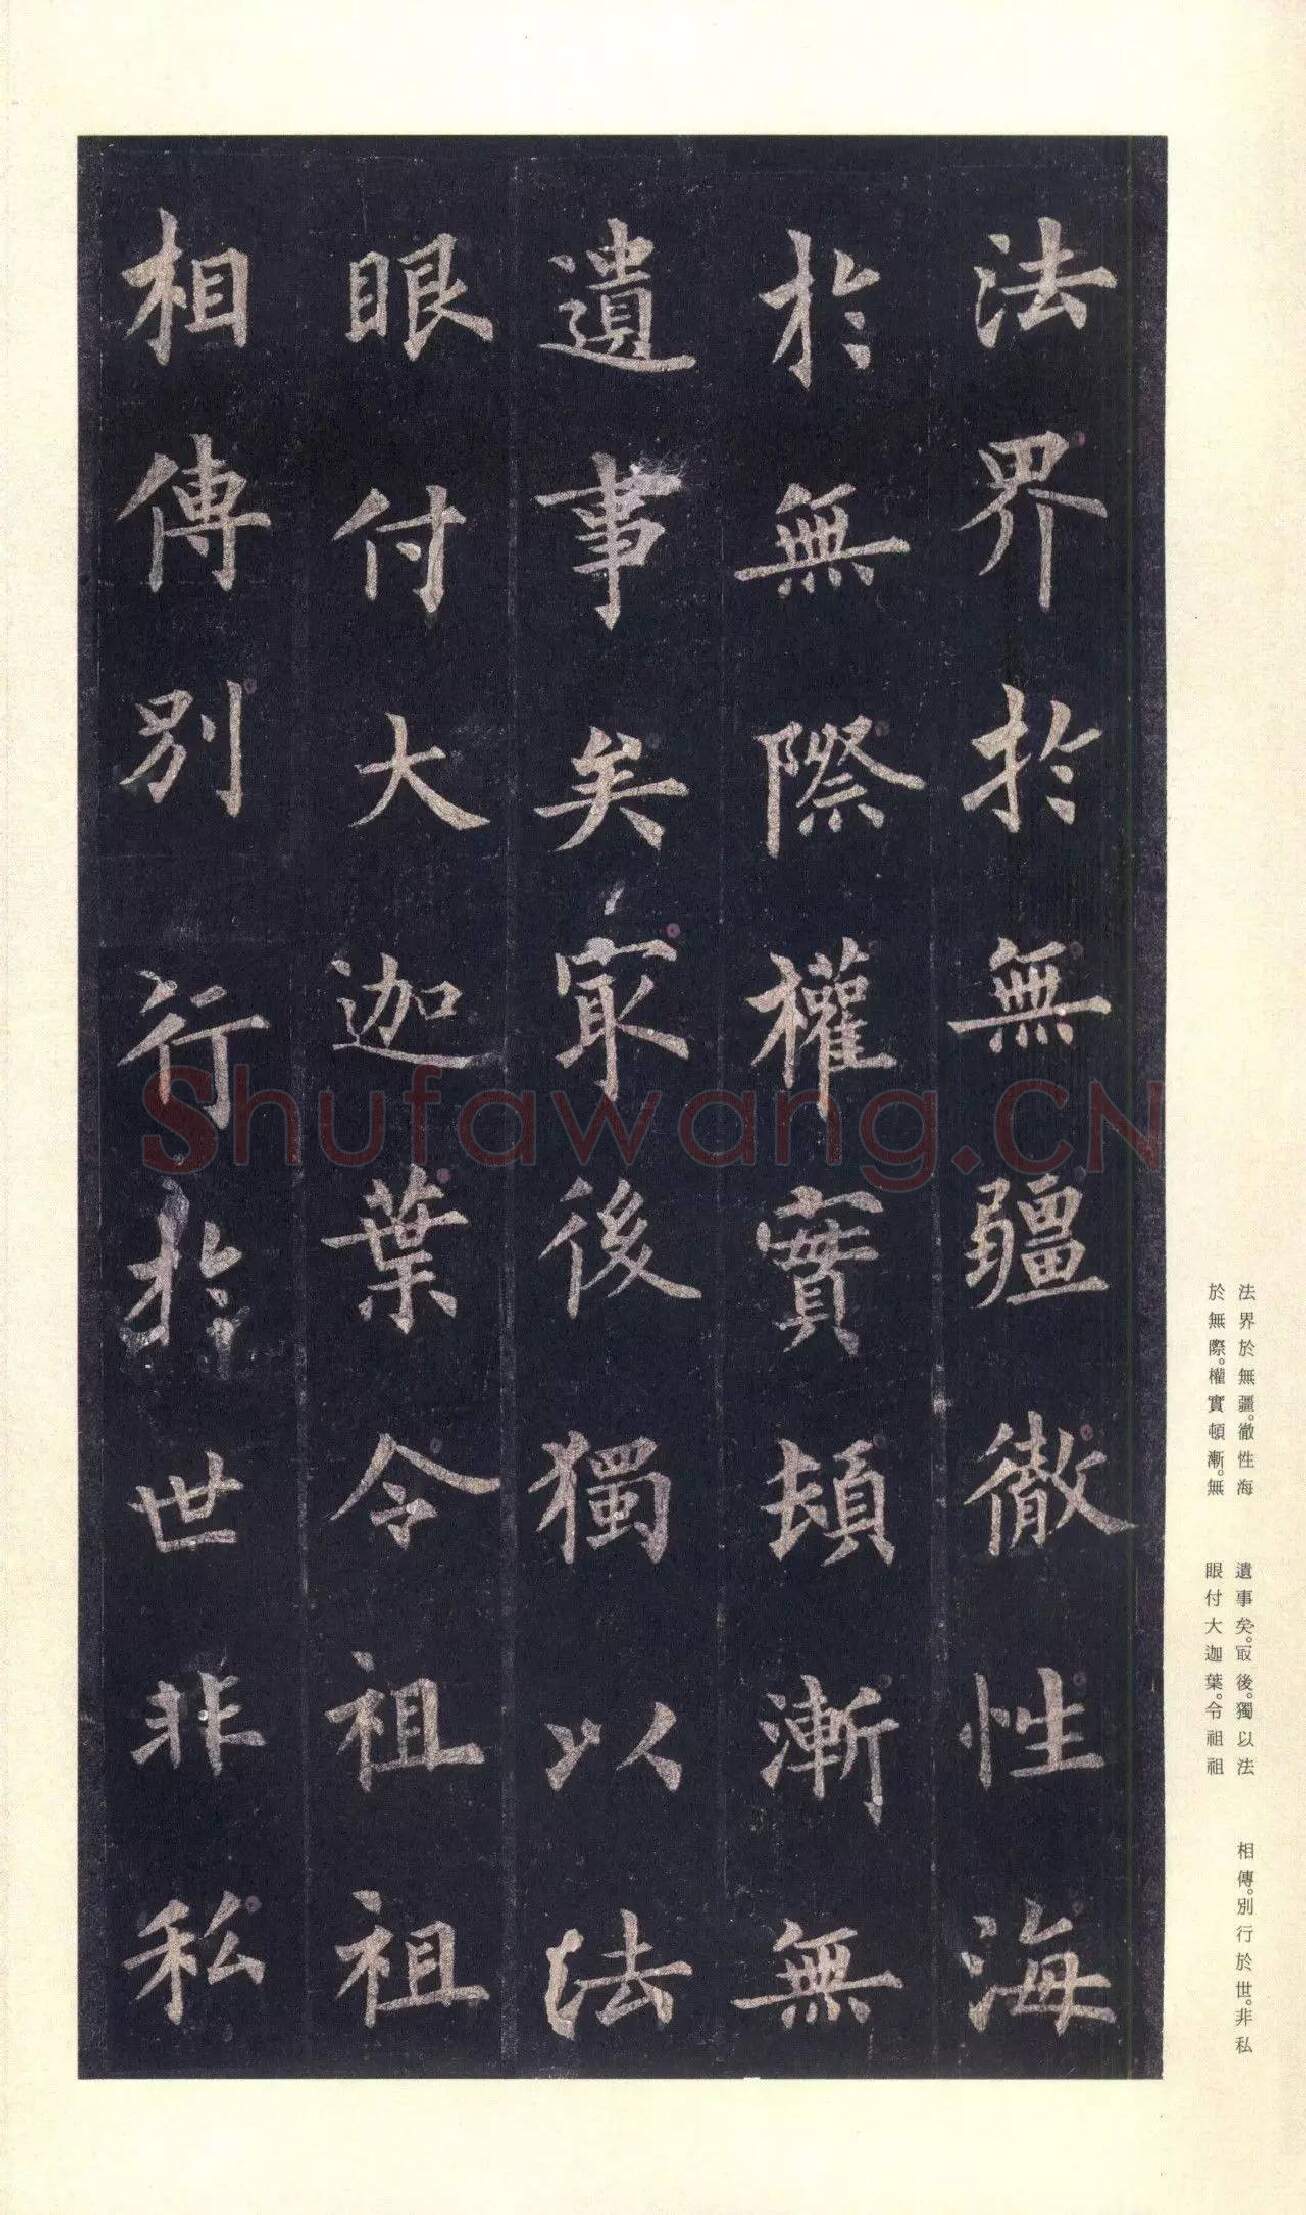 法界於無疆徹性海
於無際權實頓漸無
遺事矣㝡後獨以法
眼付大迦葉令祖祖
相傳別行於世非私
法界於無疆。徹性海
於無際。權實頓漸。無
遺事矣。㝡後。獨以法
眼付大迦葉。令祖祖
相傳。別行於世。非私
Shufawang.CN